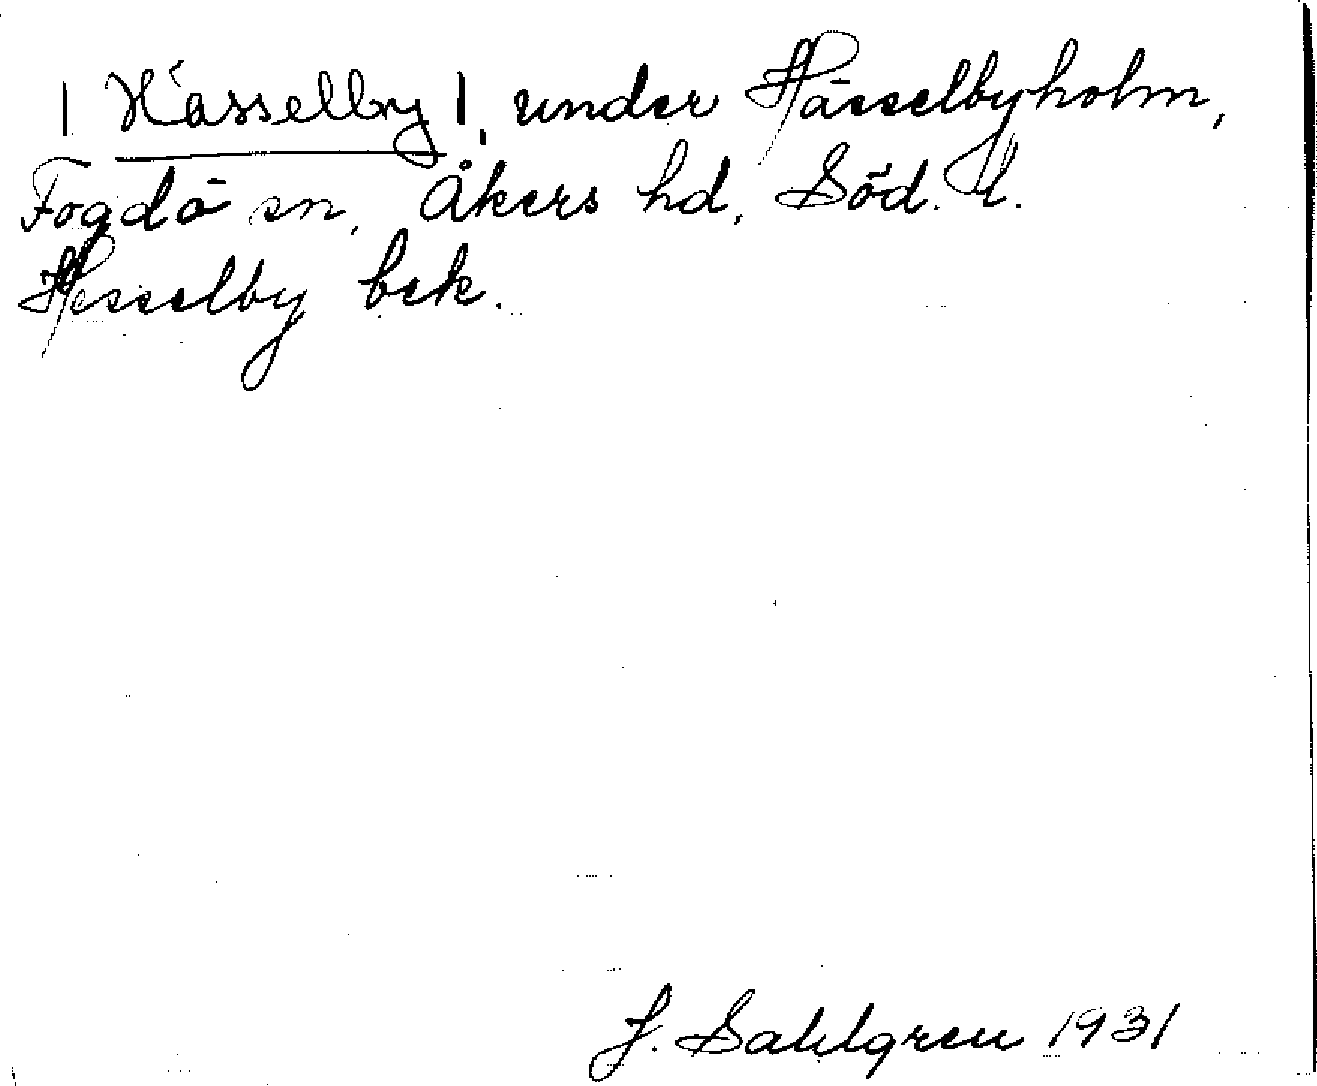 | Hässelby |, under Hässelbyholm,
Fogdö sn, Åkers hd, Söd. l.
Hesselby bek.
J. Sahlgren 1931